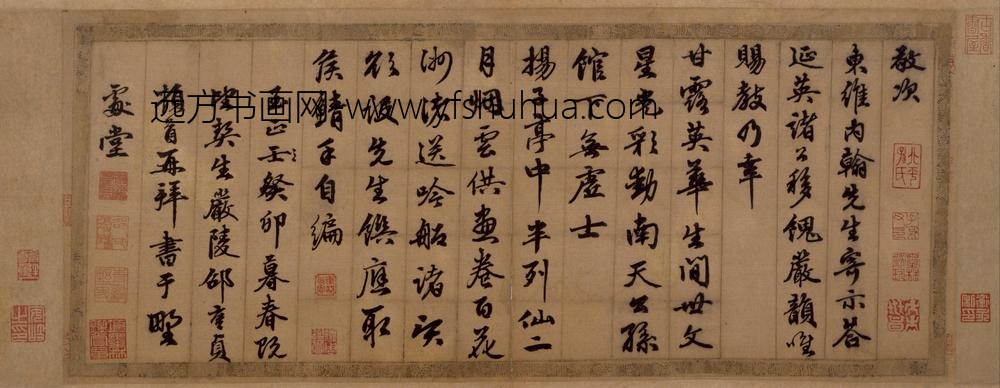 敬次
東維內翰先生寄示荅
延英諸公移餽嚴韻唯
賜教乃幸
甘露英華生間世文
星光彩動南天公孫
館下無虛士
揚子亭中半列仙二
月烟雲供畫卷百花
洲渚送吟船諸
欲先生饌應取
侯鯖手自編
至正壬癸卯暮春既
望契生嚴陵邵亨貞
頓首再拜書于野
處堂
远方书画网 www.yfshuhua.com